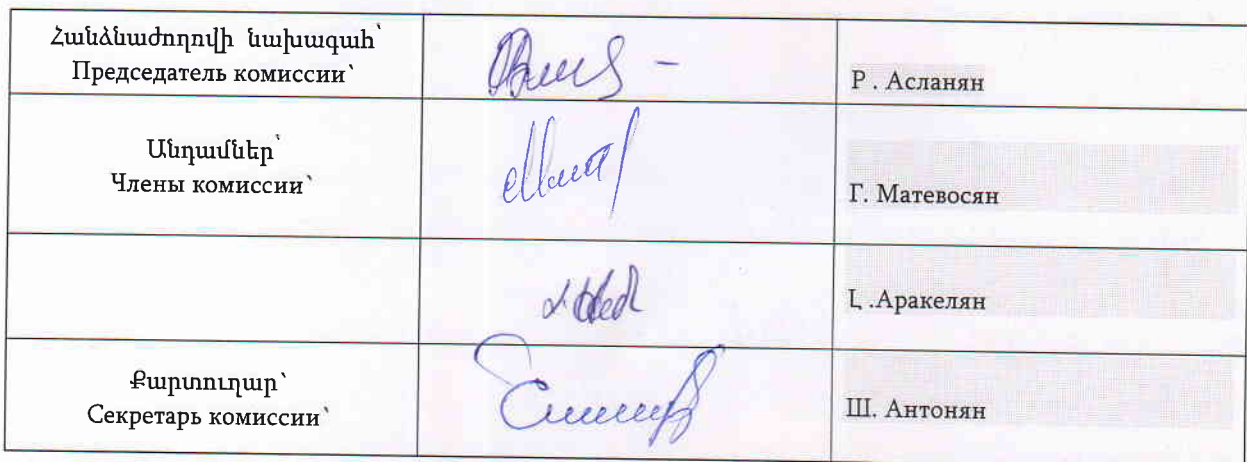 Հանձնաժողովի նախագահ՝
Председатель комиссии՝
Р . Асланян
Անդամներ՝
Члены комиссии՝
Г. Матевосян
Լ .Аракелян
Քարտուղար՝
Секретарь комиссии՝
Ш. Антонян